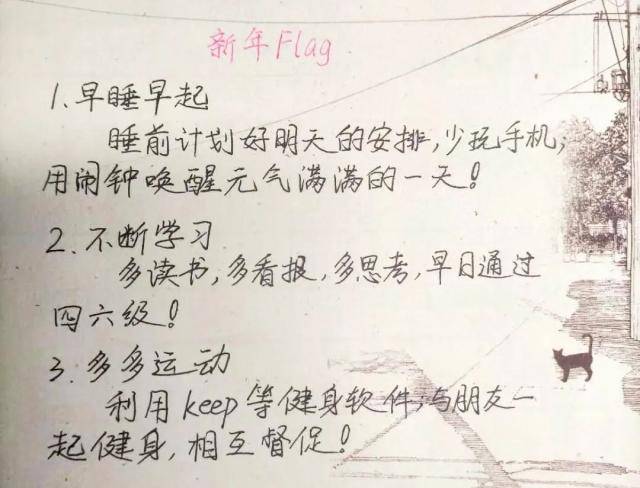 新年Flag
1.早睡早起
睡前计划好明天的安排,少玩手机;
用闹钟唤醒元气满满的一天!
2.不断学习
多读书,多看报,多思考,早日通过
四六级!
3.多多运动
利用keep等健身软件;与朋友一
起健身,相互督促!